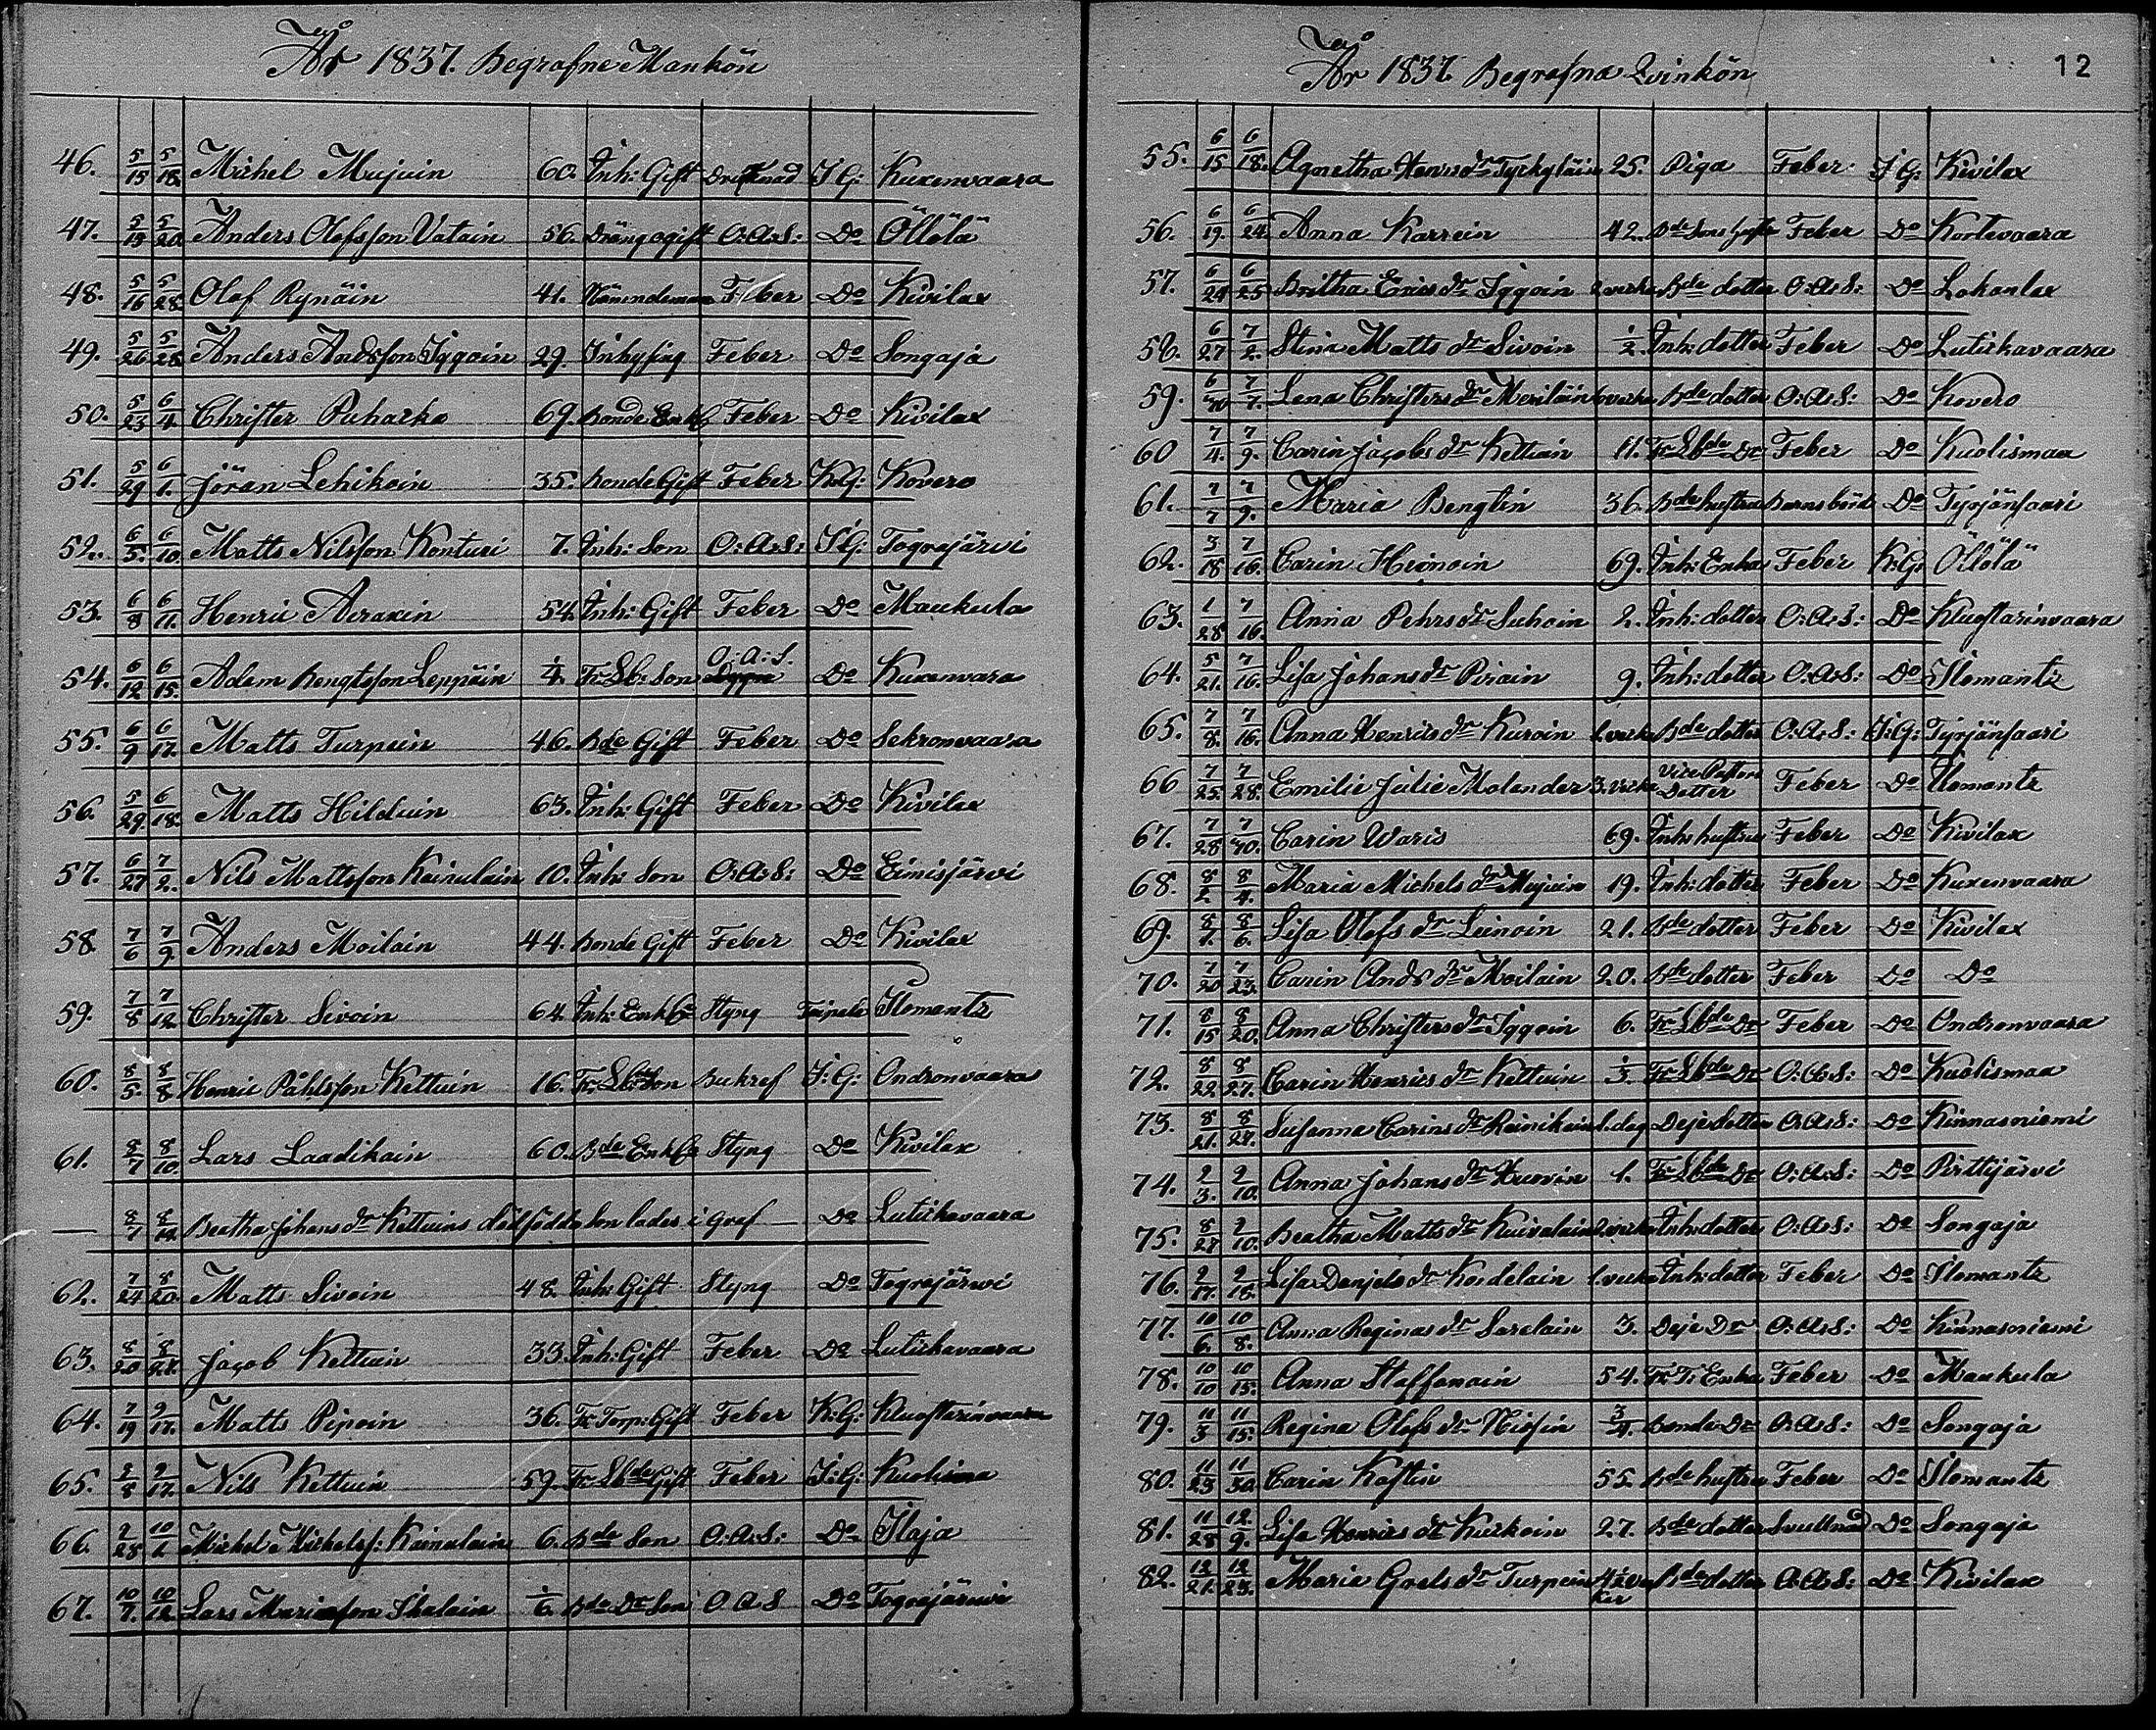 År 1837. Begrafne Mankön
46. 5/15 5/18. Michel Mujuin 60. Inh: Gift Drucknad I.G: Kuxenvaara
47. 5/13 5/20. Anders Olofsson Vatain 56. Dräng ogift O:A:S: Do Öllölä
48. 5/16 5/28. Olof Rynäin 41. Nämndeman Feber Do Kivilax
49. 5/26 5/28. Anders Andsson Iggoin 29. Inhysing Feber Do Songaja
50. 5/23 6/4. Christer Puhacka 69. Bonde Enkl Feber Do Kivilax
51. 5/29 6/1. Jöran Lehikoin 35. Bonde Gift Feber K:G: Kovero
52. 6/5. 6/10. Matts Nilsson Konturi 7. Inh: Son O:A:S: I:G: Tograjärvi
53. 6/8 6/11. Henric Acraxin 54. Inh: Gift Feber Do Maukula
54. 6/12 6/15. Adam Bengtsson Leppäin 1/4. Fr Lb: Son O:A:S. Do Kuxenvara
55. 6/9 6/17. Matts Turpein 46. Bde Gift Feber Do Sekronvaara
56. 5/29. 6/18. Matts Hilduin 63. Inh: Gift Feber Do Kivilax
57. 6/27 7/2. Nils Mattsson Kainulain 10. Inh: Son O:A:S: Do Eimisjärvi
58 7/6 7/9. Anders Moilain 44. Bonde Gift Feber Do Kivilax
59. 7/8 7/12. Christer Sivoin 64. Inh: Enkl Styng Toipola Ilomantz
60. 8/5. 8/8 Henric Påhlsson Kettuin 16. Fr Lbde Son Bukref I:G: Ondronvaara
61. 8/7 8/10. Lars Laadikain 60. Bde Enkl Styng Do Kivilax
— 8/7 8/14. Beatha Johans dr Kettuins dödfödda Son lades i Graf — Do Lutickavaara
62. 7/24 8/20. Matts Sivoin 48. Inh: Gift Styng Do Tograjärwi
63. 8/20 8/27. Jacob Kettuin 33. Inh: Gift Feber Do Lutickavaara
64. 7/19 9/17. Matts Piipoin 36. Fr Torp: Gift Feber K:G: Kluostarinvaara
65. 9/8 9/17. Nils Kettuin 59. Fr Lbde Gift Feber I:G: Kuolisma
66. 9/28 10/1. Michel Michelss: Kainulain 6. Bde Son O:A:S: Do Ilaja
67. 10/7. 10/12. Lars Mariasson Ikalain 1/6. Bde Dr Son O A S Do Tograjärwi
År 1837. Begrafna Qvinkön 12
55. 6/15 6/18. Agnetha Henrs dr Tyckyläin 25. Piga Feber I G: Kivilax
56. 6/19. 6/24. Anna Karrein 42. Bde Sons hustru Feber Do Kortevaara
57. 6/24 6/25 Britha Erics dr Iggoin 2 vecka Bde dotter O:A:S: Do Lohanlax
58. 6/27 7/2. Stina Matts dr Sivoin 1/2 Inh: dotter Feber Do Lutickavaara
59. 6/30 7/7. Lena Christers dr Meriläin vecka Bde dotter O:A:S: Do Kovero
60 7/4. 7/9. Carin Jacobs dr Kettuin 11. Fr Lbde Dr Feber Do Kuolismaa
61. 7/7 7/9. Maria Bengtin 36. Bde hustru Barnsbörd Do Tyrjänsaari
62. 3/18 7/16. Carin Heinoin 69. Inh: Enka Feber K:G: Öllölä
63. 1/28 7/16. Anna Pehrs dr Suhoin 2. Inh: dotter O:A:S: Do Kluostarinvaara
64. 5/21. 7/16. Lisa Johans dr Pirain 9. Inh: dotter O:A:S: Do Ilomantz
65. 7/8. 7/16. Anna Henrics dr Kuroin 1. vecka Bde dotter O:A:S: I:G: Tyrjänsaari
66 7/25. 7/28. Emilie Julie Molander 3. vecka Vice Pastors Dotter Feber Do Ilomantz
67. 7/28 7/30. Carin Waris 69. Inh: hustru Feber Do Kivilax
68. 8/2 8/4. Maria Michels dr Mujuin 19. Inh: dotter Feber Do Kuxenvaara
69. 8/1. 8/6. Lisa Olofs dr Leinoin 21. Bde dotter Feber Do Kivilax
70. 7/20 7/23. Carin Ands dr Moilain 20. Bde dotter Feber Do Do
71. 8/15 8/20. Anna Christers dr Iggoin 6. Fr Lbde Dr Feber Do Ondronvaara
72. 8/22 8/27. Carin Henrics dr Kettuin 1/3. Fr Lbde Dr O:A:S: Do Kuolismaa
73. 8/21. 8/27. Susanna Carins dr Reinikain 1. dag Deje dotter O:A:S: Do Kinnasniemi
74. 9/3. 9/10. Anna Johans dr Huovin 1. Fr Lbde Dr O:A:S: Do Pirttijärvi
75. 8/27 9/10. Beatha Matts dr Kuivalain 2 vecka Inh: dotter O:A:S: Do Songaja
76. 9/17. 9/18. Lisa Danjels dr Kordelain 1. vecka Inh: dotter Feber Do Ilomantz
77. 10/6. 10/8. Anna Reginas dr Sarelain 3. Deje Dr O:A:S: Do Kinnasniemi
78. 10/10 10/15. Anna Staffanain 54. Fr T: Enka Feber Do Maukula
79. 11/3 11/15. Regina Olofs dr Nissin 3/4. Bonde Dr O:A:S: Do Songaja
80. 11/23 11/30. Carin Kostin 55. Bde hustru Feber Do Ilomantz
81. 11/28 12/9. Lisa Henrics dr Kurkoin 27. Bde dotter Svullnad Do Songaja
82. 12/21. 12/23. Maria Grels dr Turpein 4 1/2 vecker Bde dotter O:A:S: Do Kivilax